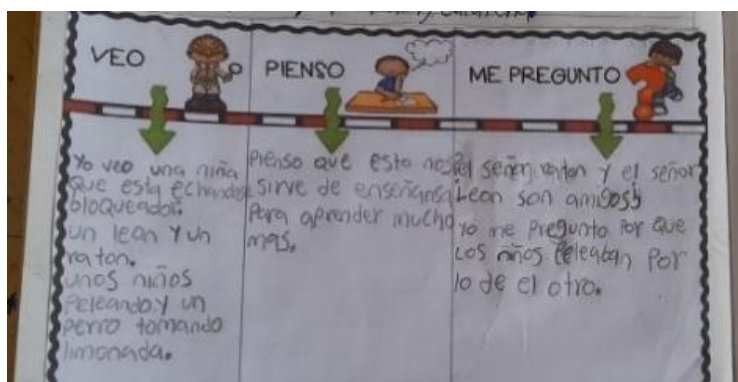 VEO
PIENSO
ME PREGUNTO
Yo veo una niña
que esta echandose
bloqueador.
un leon y un
raton.
unos niños
Peleando y un
perro tomando
limonada.
Pienso que esto nos
sirve de enseñansa
Para aprender mucho
mas.
el señor raton y el señor
Leon son amigos
yo me Pregunto Por que
Los niños Peleaban Por
lo de el otro.